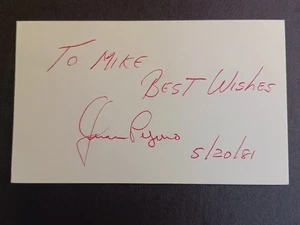 TO MIKE
BEST WISHES
5/20/81